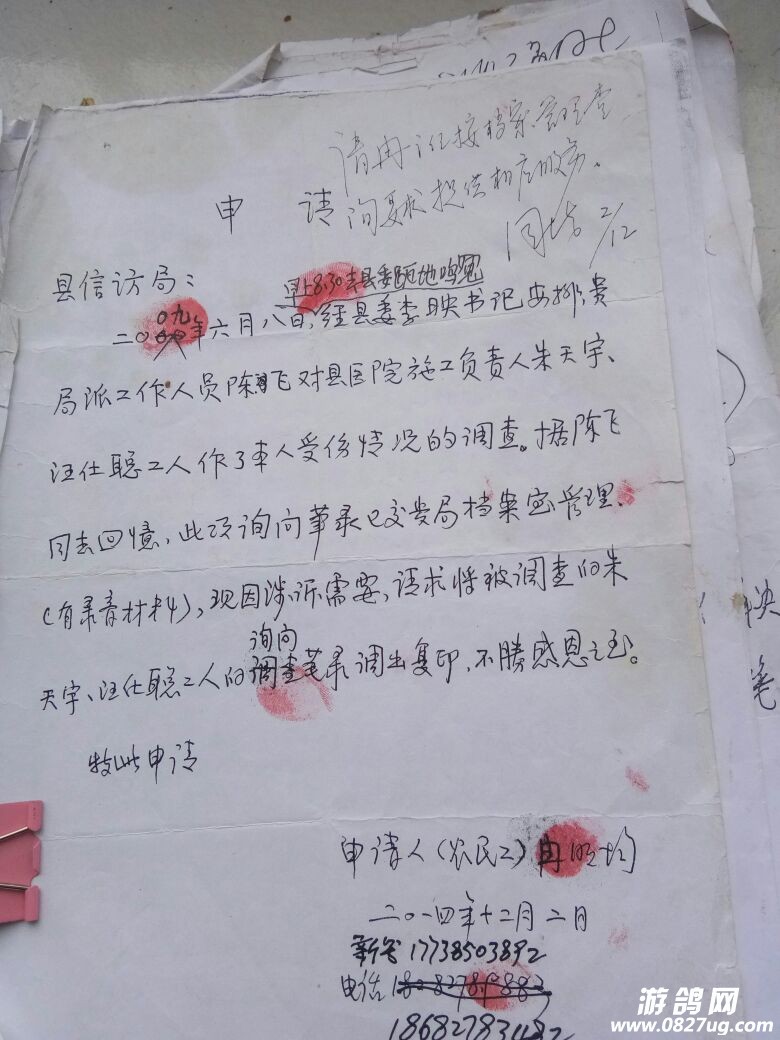 请冉主任按档案管理查
询要求提供相应服务。
2/12
申 请
县信访局：
早上8:30去县委跪地鸣冤
二〇〇九年六月八日，经县委李映书记安排，贵
局派工作人员陈飞对县医院施工负责人朱天宇、
汪仕聪二人作了本人受伤情况的调查。据陈飞
同志回憶，此项询问笔录已交贵局档案室管理、
（有录音材料），现因涉诉需要，请求将被调查的朱
询问
天宇、汪仕聪二人的调查笔录调出复印，不勝感恩之至。
特此申请
申请人（农民工）冉明均
二〇一四年十二月二日
新号 17738503892
电话
游鸽网
www.0827ug.com